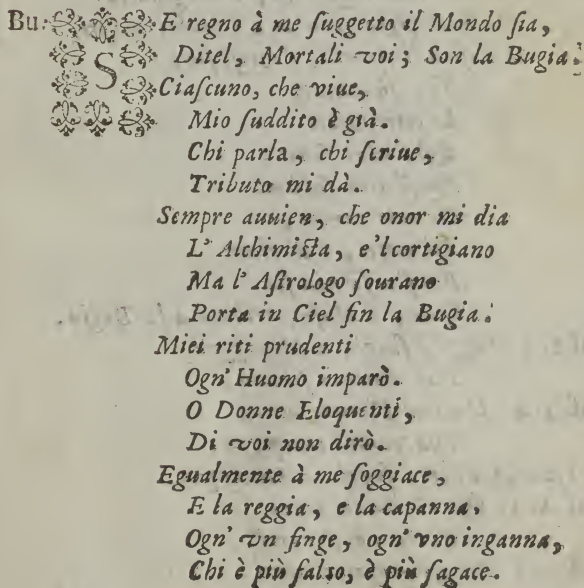 Bu. SE regno à me ſuggetto il Mondo ſia,
Ditel, Mortali voi; Son la Bugia.
Ciaſcuno, che viue,
Mio ſuddito è già.
Chi parla, chi ſcriue,
Tributo mi dà.
Sempre auuien, che onor mi dia
L' Alchimiſta, e'l cortigiano
Ma l' Aſtrologo ſourano
Porta in Ciel fin la Bugia.
Miei riti prudenti
Ogn' Huomo imparò.
O Donne Eloquenti,
Di voi non dirò.
Egualmente à me ſoggiace,
E la reggia, e la capanna,
Ogn' vn finge, ogn' vno inganna,
Chi è più falſo, è più ſagace.